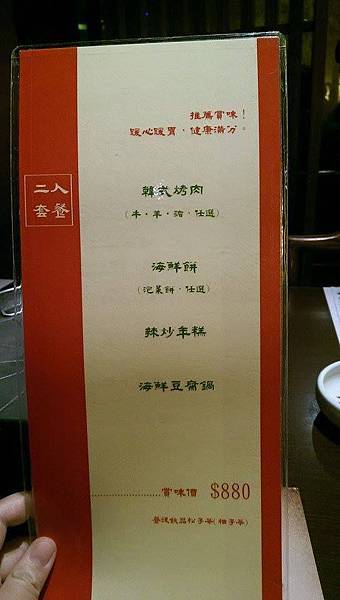 推薦賞味！
暖心暖胃，健康滿分。
二人
套餐
韓式烤肉
(牛・羊・豬，任選)
海鮮餅
(泡菜餅，任選)
辣炒年糕
海鮮豆腐鍋
賞味價 $880
餐後飲品松子茶(柚子茶)